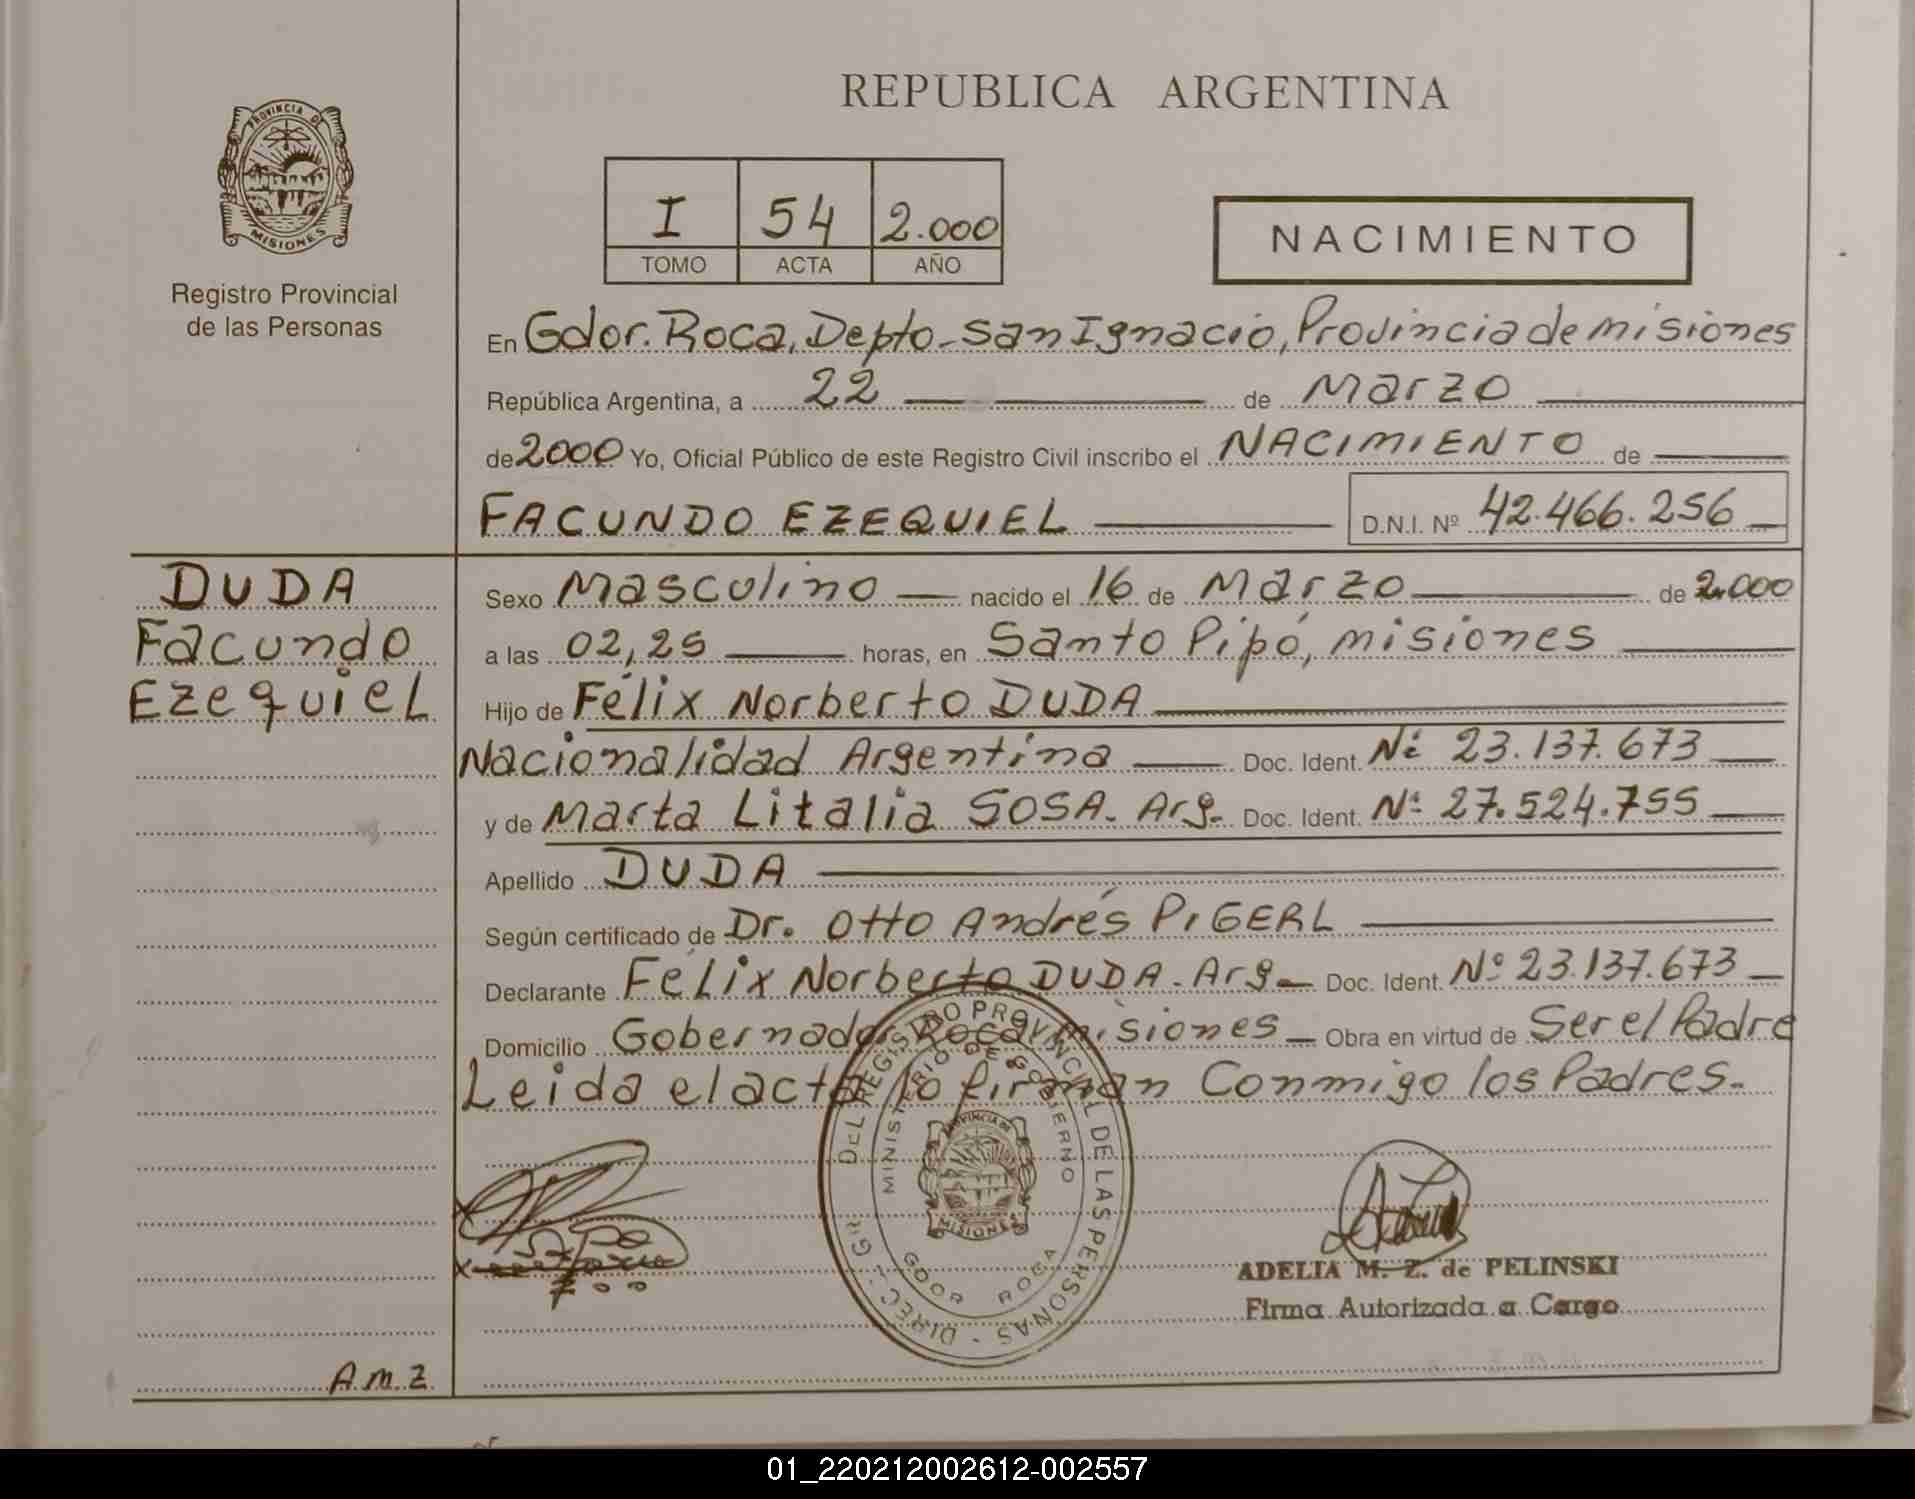 REPUBLICA ARGENTINA
PROVINCIA DE
MISIONES
Registro Provincial
de las Personas
I 54 2.000
TOMO ACTA AÑO
NACIMIENTO
En Gdor. Roca, Depto-San Ignacio, Provincia de misiones
República Argentina, a 22 de Marzo
de 2000 Yo, Oficial Público de este Registro Civil inscribo el NACIMIENTO de
FACUNDO EZEQUIEL D.N.I. Nº 42.466.256
DUDA
Facundo
Ezequiel
Sexo Masculino nacido el 16 de Marzo de 2.000
a las 02,25 horas, en Santo Pipó, misiones
Hijo de Félix Norberto DUDA
Nacionalidad Argentina Doc. Ident. Nº 23.137.673
y de Marta Litalia SOSA. Arg. Doc. Ident. Nº 27.524.755
Apellido DUDA
Según certificado de Dr. Otto Andrés PIGERL
Declarante Félix Norberto DUDA. Arg. Doc. Ident. Nº 23.137.673
Domicilio Gobernador Roca, misiones Obra en virtud de Ser el Padre
Leida el acta lo firman Conmigo los Padres.
DEL REGISTRO PROVINCIAL DE LAS PERSONAS - DIREC. GR
MINISTERIO DE GOBIERNO
PROVINCIA DE
MISIONES
GDOR ROCA
ADELIA M. Z. de PELINSKI
Firma Autorizada a Cargo
A.M.Z.
01_220212002612-002557